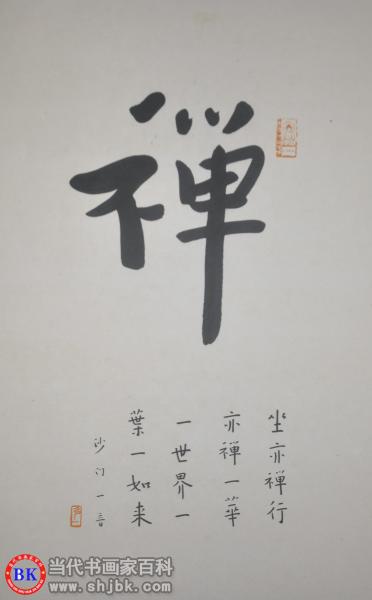 禅
坐亦禅行
亦禅一華
一世界一
葉一如来
沙门一音
BK
当代书画家百科
www.shjbk.com